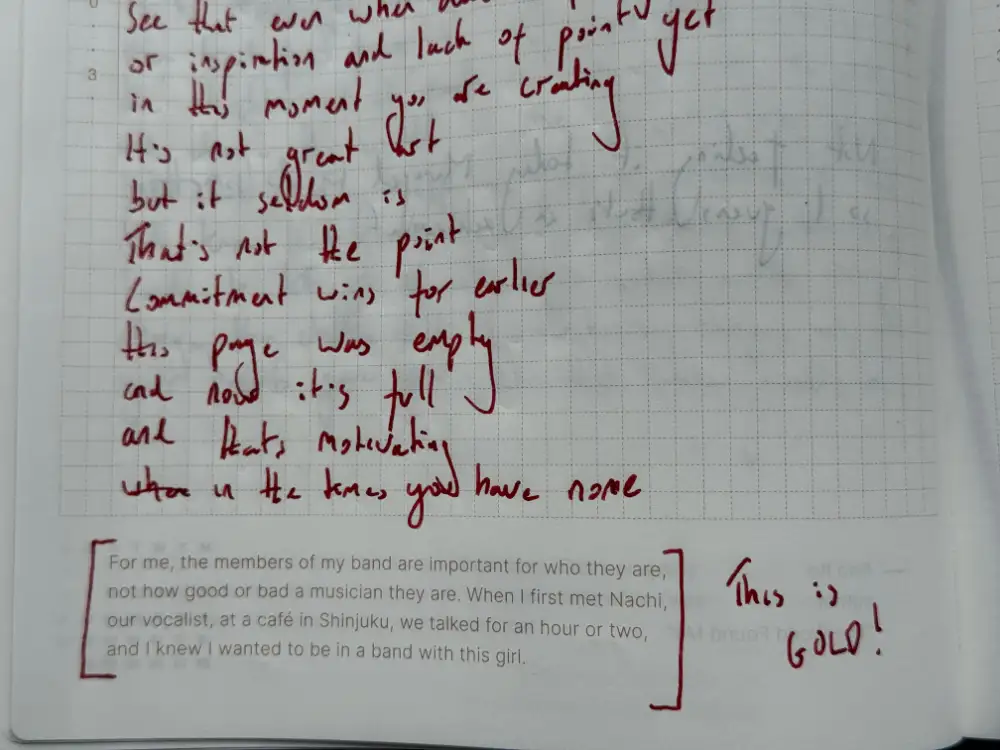 See that even when
or inspiration and lack of point yet
in this moment you are creating
It's not great art
but it seldom is
That's not the point
Commitment wins for earlier
this page was empty
and now it's full
and thats motivating
when in the times you have none
For me, the members of my band are important for who they are,
not how good or bad a musician they are. When I first met Nachi,
our vocalist, at a café in Shinjuku, we talked for an hour or two,
and I knew I wanted to be in a band with this girl.
This is
GOLD!
3